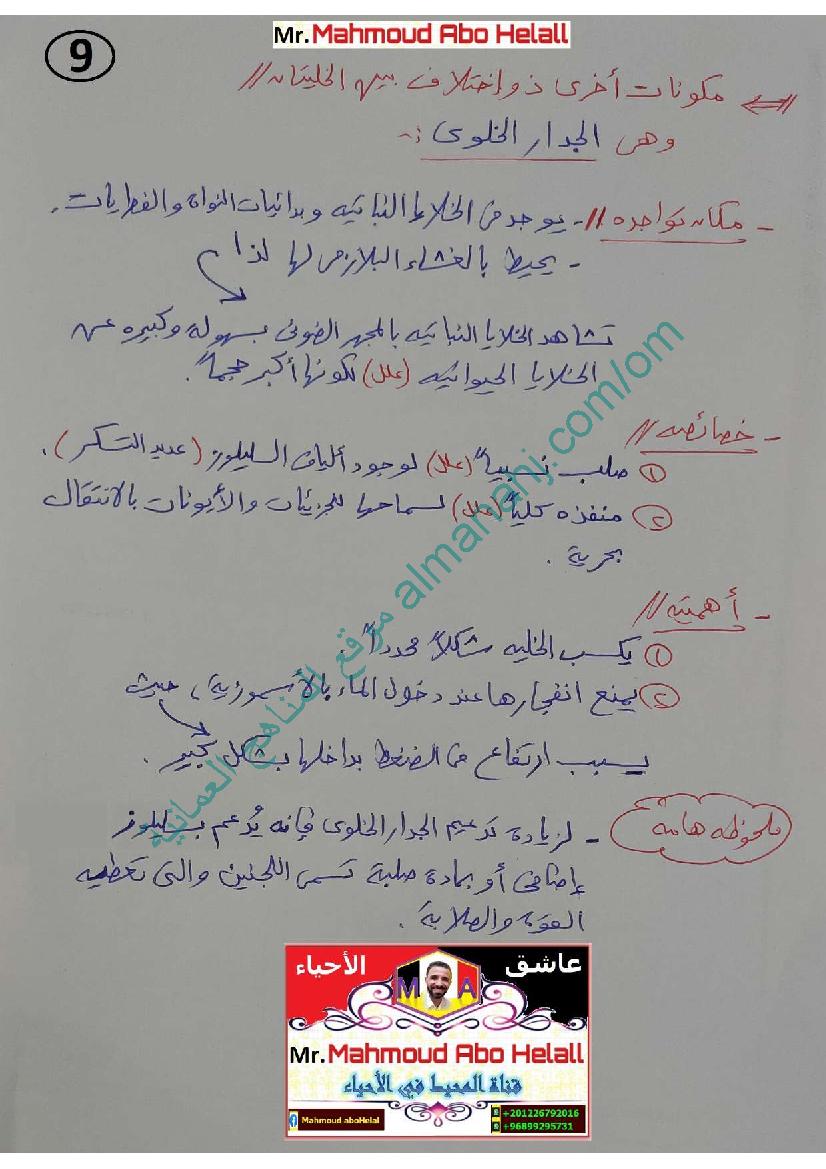 Mr.Mahmoud Abo Helall
9
مكونات أخرى ذو اختلاف بين الخليتان //
وهى الجدار الخلوى :-
- مكان تواجده // - يوجد فى الخلايا النباتيه وبدائيات النواة والفطريات.
- يحيط بالغشاء البلازمى لها لذا
تشاهد الخلايا النباتيه بالمجهر الضوئى بسهولة وكبيره عن
الخلايا الحيوانيه (علل) لكونها أكبر حجماً.
- خصائصه //
① صلب نسبياً (علل) لوجود ألياف السليلوز (عديد التسكر).
② منفذه كلياً (علل) لسماحها للجزيئات والأيونات بالانتقال
بحرية.
- أهميته //
① يكسب الخليه شكلاً محدداً.
② يمنع انفجارها عند دخول الماء بالأسموزية، حيث
يسبب ارتفاع فى الضغط بداخلها بشكل كبير.
ملحوظه هامه
- لزيادة تدعيم الجدار الخلوى فإنه يُدعم بسليلوز
إضافى أو بمادة صلبة تسمى اللجنين والتى تعطيه
القوة والصلابة.
موقع المناهج العمانية almanahj.com/om
عاشق الأحياء
M A
Mr.Mahmoud Abo Helall
قناة المحيط في الأحياء
Mahmoud aboHelal
+201226792016
+96899295731